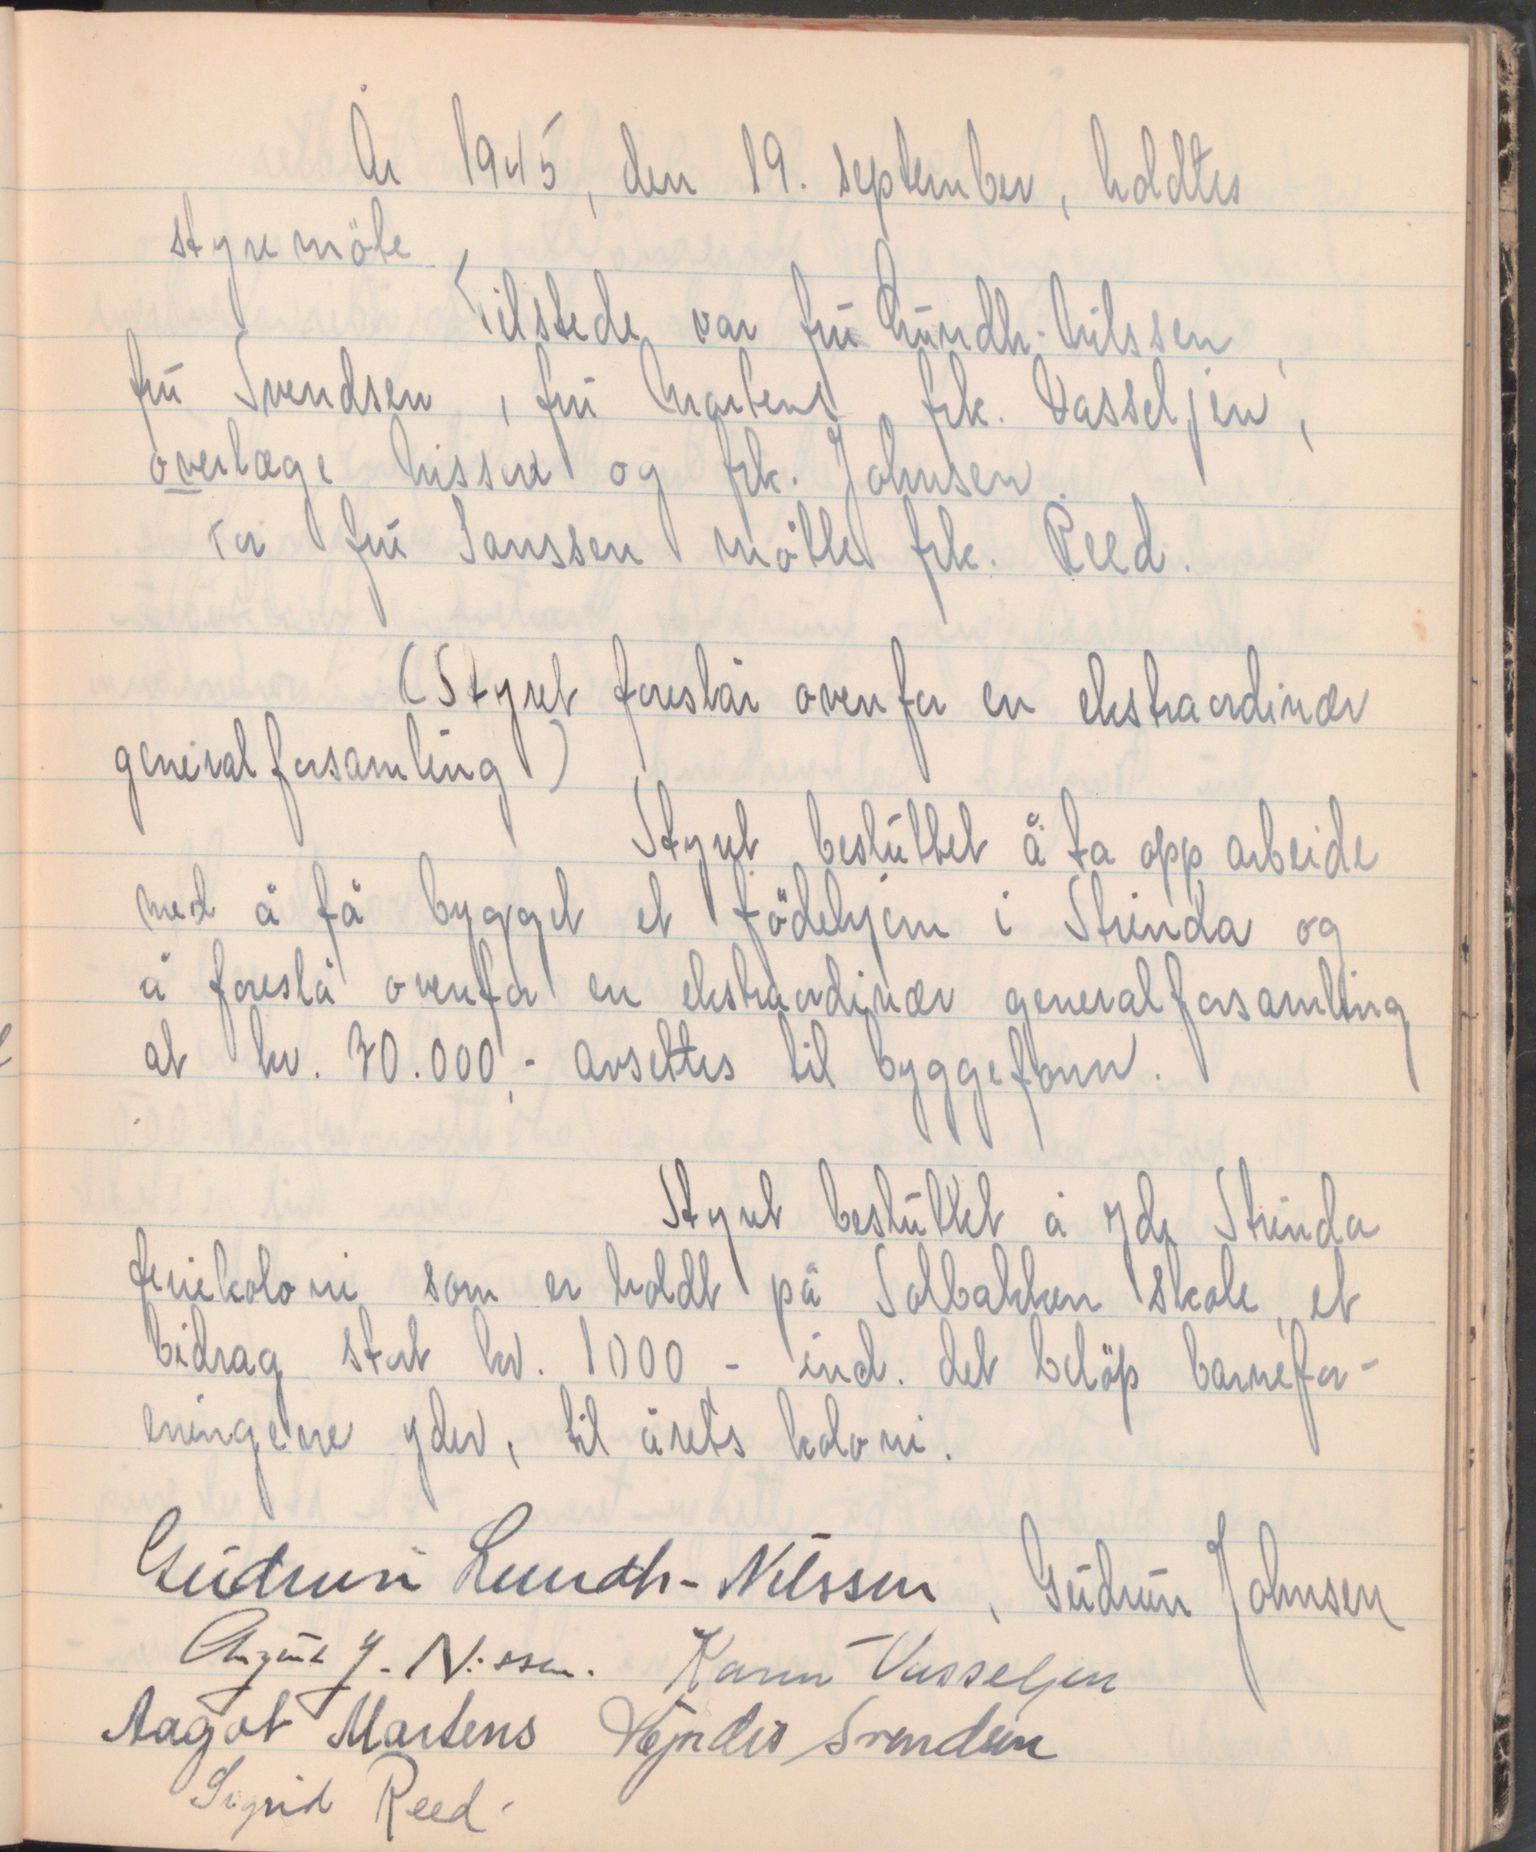 År 1945, den 19. september, holdtes
styremöte.
Tilstede var fru Lundh-Nilssen,
fru Svendsen, fru Martens, frk. Vasseljen,
overlæge Nissen og frk. Johnsen.
For fru Janssen mötte frk. Reed.
(Styret foreslår ovenfor en ekstraordinær
generalforsamling)
Styret besluttet å ta opp arbeide
med å få bygget et födehjem i Strinda og
å foreslå ovenfor en ekstraordinær generalforsamling
at kr. 70.000,- avsettes til byggefonn.
Styret besluttet å yde Strinda
feriekoloni som er holdt på Solbakken skole, et
bidrag stort kr. 1000 - incl. det belöp barnefor-
eningene yder, til årets koloni.
Gudrun Lundh-Nilssen, Gudrun Johnsen
August J. Nissen. Karen Vasseljen
Aagot Martens Svendsen
Sigrid Reed.